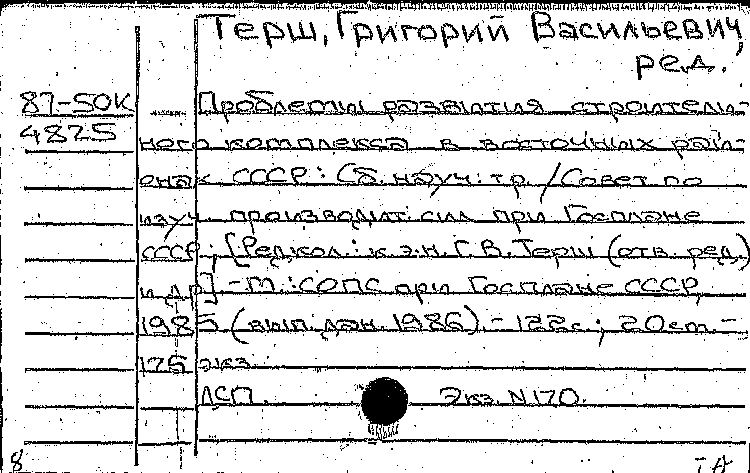 Терш, Григорий Васильевич,
ред.
87-50К Проблемы развития строитель-
4825 ного комплекса в восточных рай-
онах СССР: Сб. науч. тр. / Совет по
изуч. производит. сил при Госплане
СССР; [Редкол.: к.э.н. Г.В. Терш (отв. ред.)
и др.] -М.: СОПС при Госплане СССР,
1985 (вып. дан. 1986). - 122с.; 20см. -
175 экз.
ЛСП Экз. N 170.
8